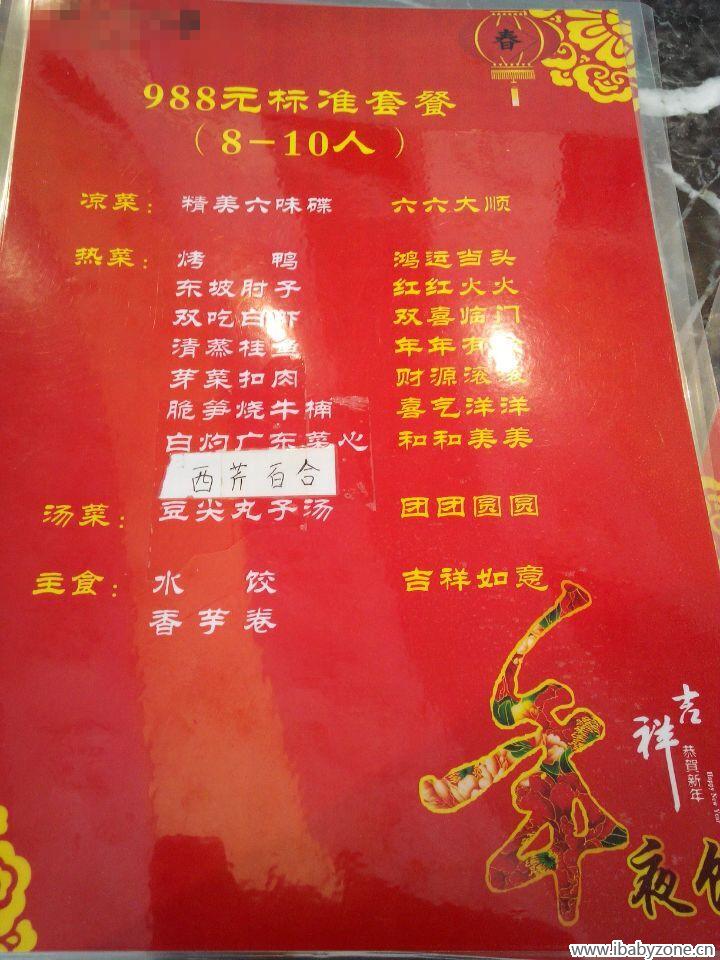 春
988元标准套餐
（8-10人）
凉菜： 精美六味碟 六六大顺
热菜： 烤 鸭 鸿运当头
东坡肘子 红红火火
双吃白虾 双喜临门
清蒸桂鱼 年年有
芽菜扣肉 财源滚滚
脆笋烧牛楠 喜气洋洋
白灼广东菜心 和和美美
西芹百合
汤菜： 豆尖丸子汤 团团圆圆
主食： 水 饺 吉祥如意
香芋卷
吉祥
恭贺新年
Happy New Year
年夜
www.ibabyzone.cn